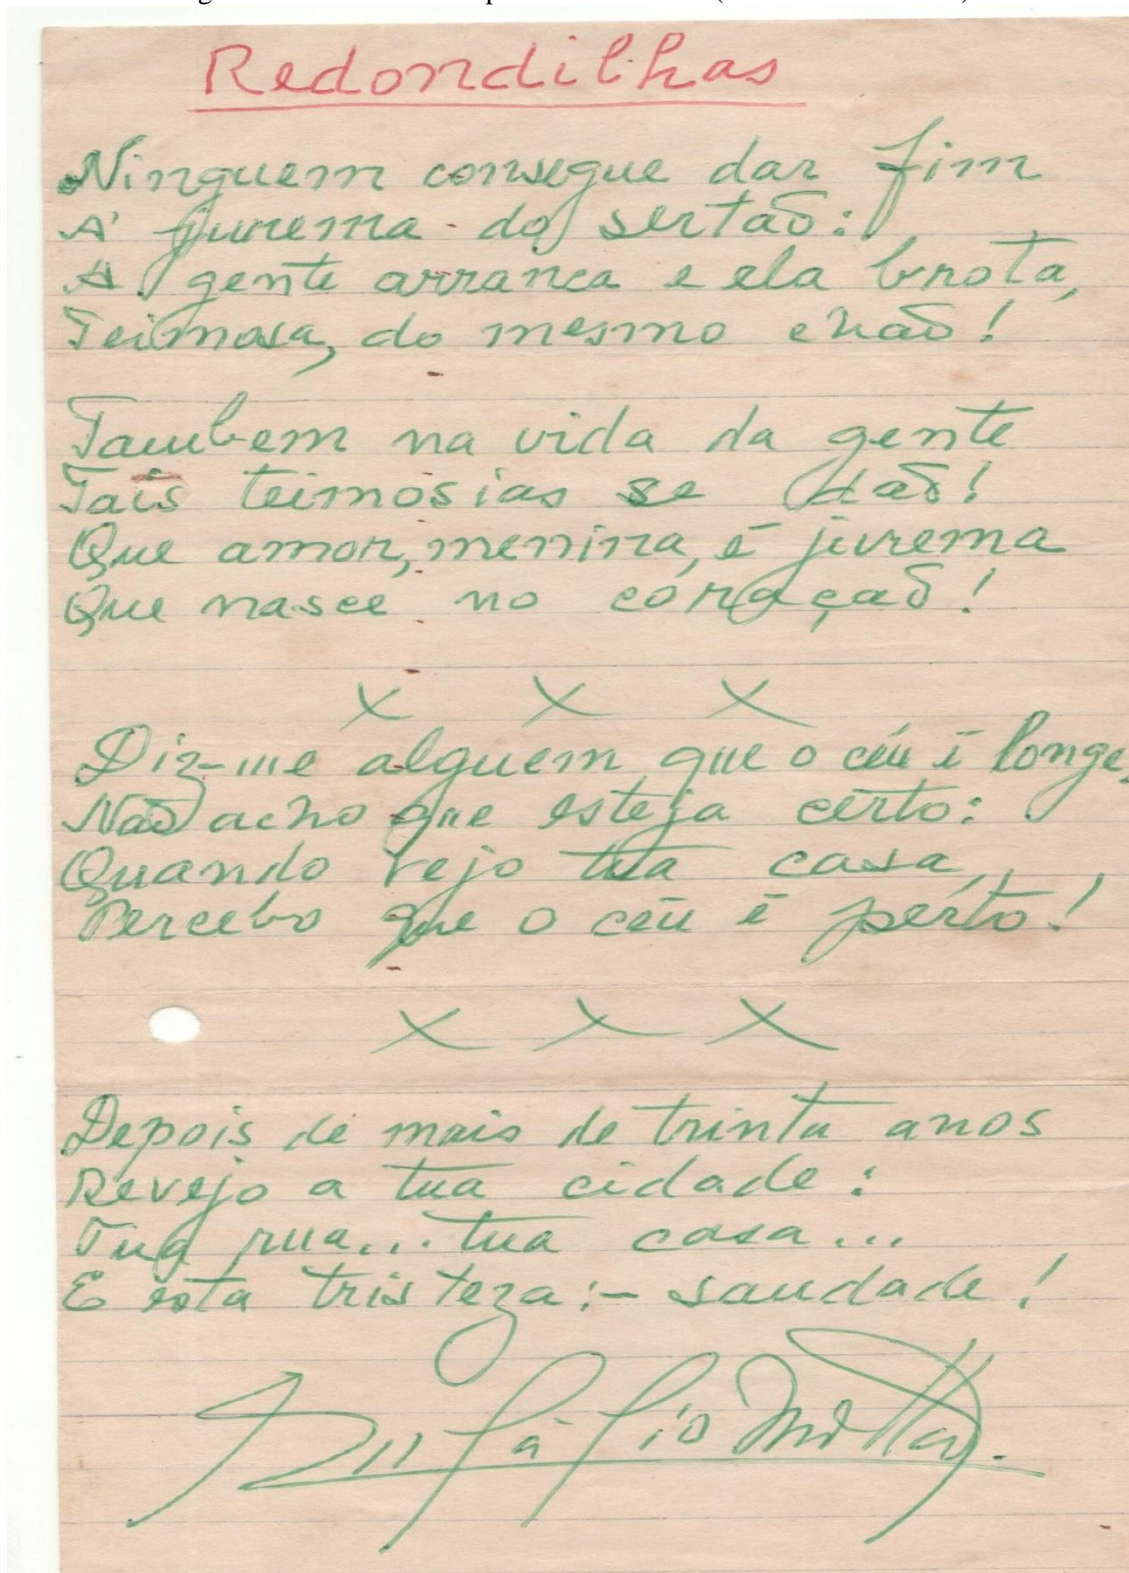 Redondilhas
Ninguem consegue dar fim
A' jurema do sertão:
A gente arranca e ela brota,
Teimosa, do mesmo chão!
Tambem na vida da gente
Tais teimosias se dão!
Que amor, menina, é jurema
Que nasce no coração!
x x x
Diz-me alguem que o céu é longe,
Não acho que esteja certo:
Quando vejo tua casa,
Percebo que o céu é perto!
x x x
Depois de mais de trinta anos
Revejo a tua cidade:
Tua rua... tua casa...
E esta tristeza: - saudade!